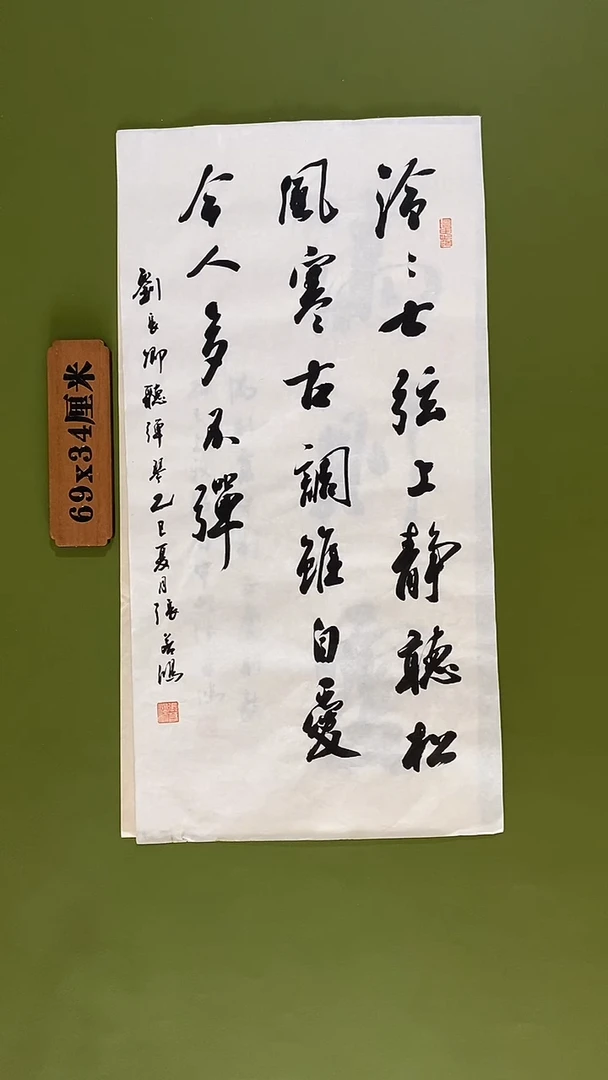 泠〻七弦上静聽松
風寒古調雖自愛
今人多不彈
劉長卿聽彈琴乙巳夏月張若鴻
69x34厘米